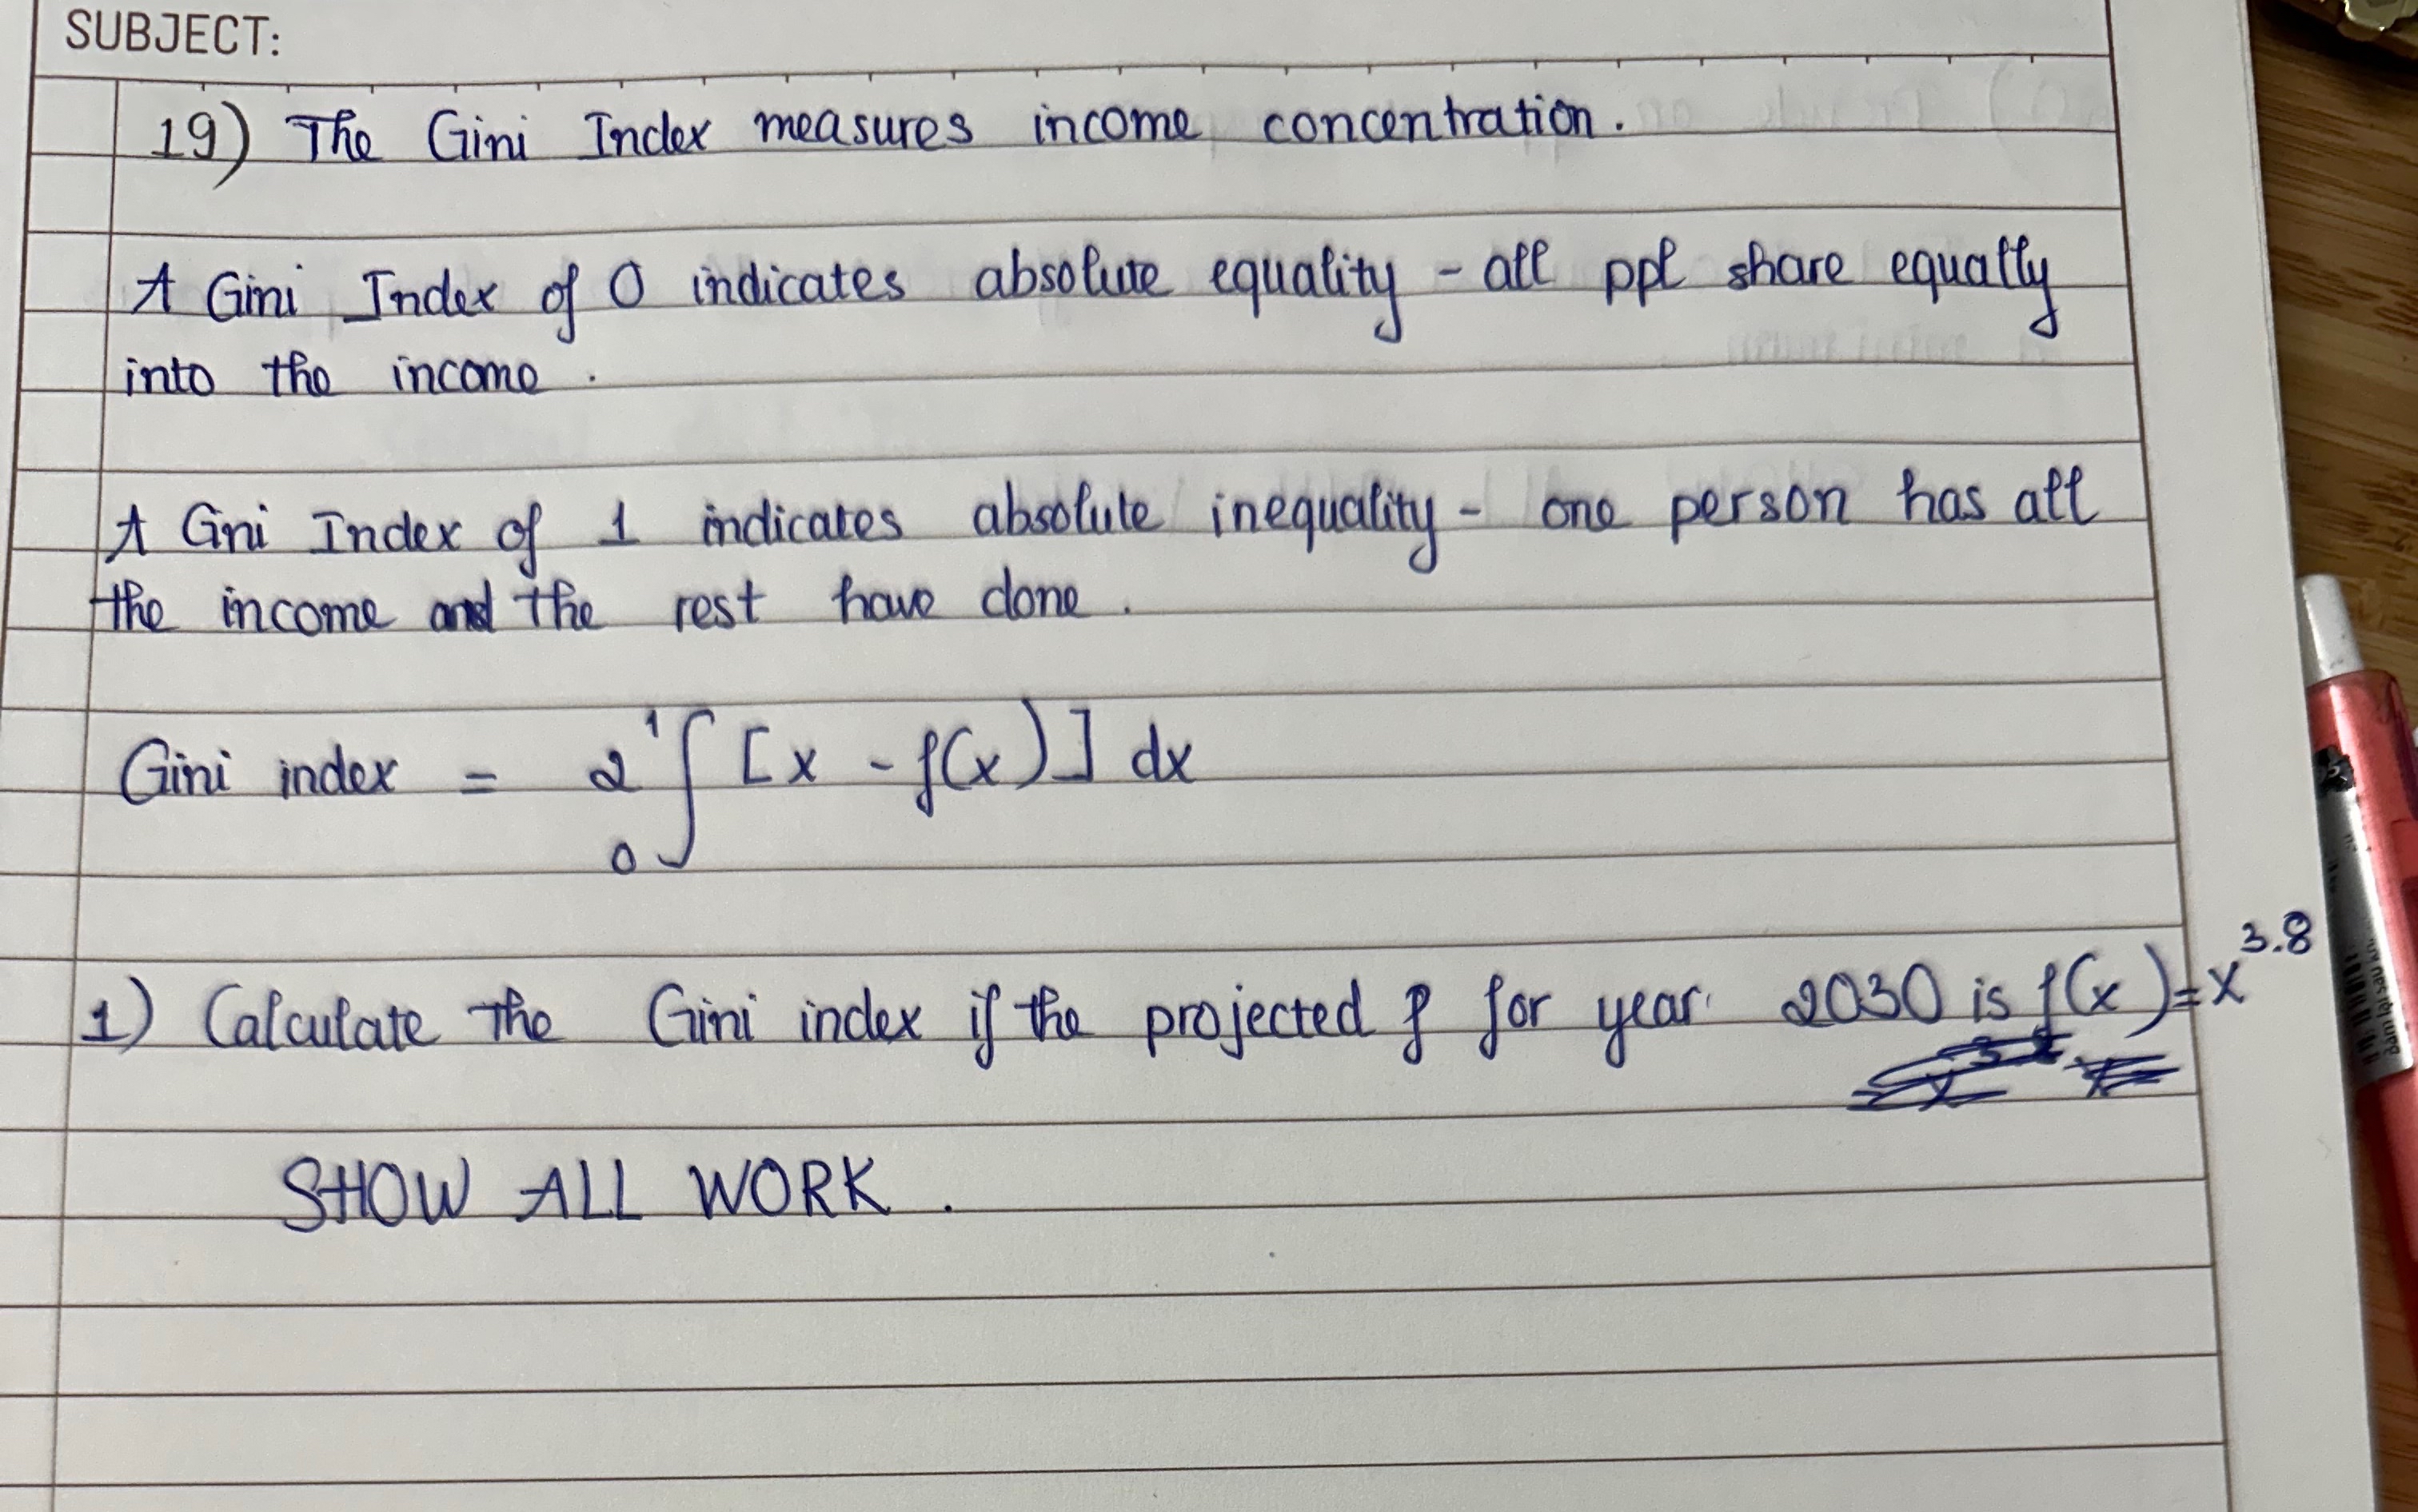 SUBJECT:
19) The Gini Index measures income concentration.
A Gini Index of 0 indicates absolute equality - all ppl share equally
into the income.
A Gni Index of 1 indicates absolute inequality - one person has all
the income and the rest have done.
Gini index = 2 ∫₀¹ [x - f(x)] dx
1) Calculate the Gini index if the projected f for year 2030 is f(x) = x^3.8
SHOW ALL WORK.